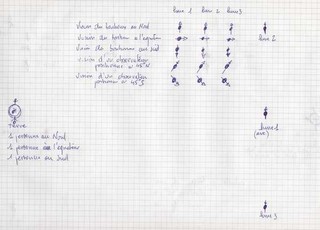 lune 1 lune 2 lune 3
vision du bonhomme au Nord
vision du bonhomme à l'équateur
lune 2
vision du bonhomme au sud
vision d'un observateur
positionné à 45°N
vision d'un observateur
positionné à 45°S
terre
1 personne au Nord
1 personne à l'équateur
1 personne au Sud
lune 1
lune 3